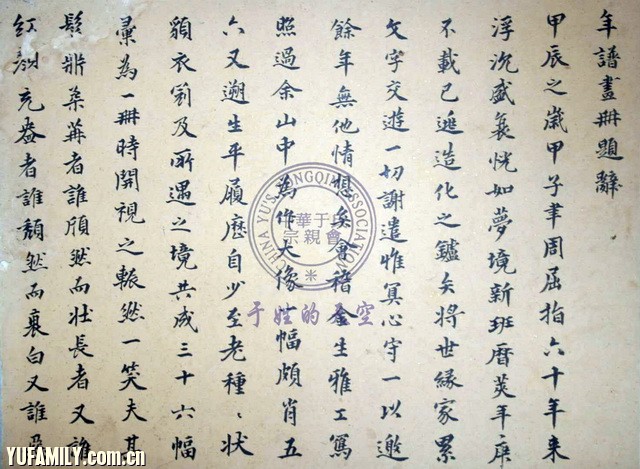 年譜畫冊題辭
甲辰之歲甲子聿周屈指六十年來
浮沉盛衰恍如夢境新班曆莢年
不載已逃造化之鑪矣將世緣家累
文字交遊一切謝遣惟冥心宇一以邀
餘年無他情想矣會稽金生雅工寫
照過余山中為作大像一幅頗肖五
六又遡生平履歷自少至老種〻狀
貌衣及所遇之境共成三十六幅
彙為一冊時開視之輾然一笑夫其
者誰頎然而壯長者又誰
紅顏充盎者誰頹然而白又誰
CHINA YU'S ZONGQIN ASSOCIATION
中華于氏宗親會
于姓的天空
YUFAMILY.com.cn